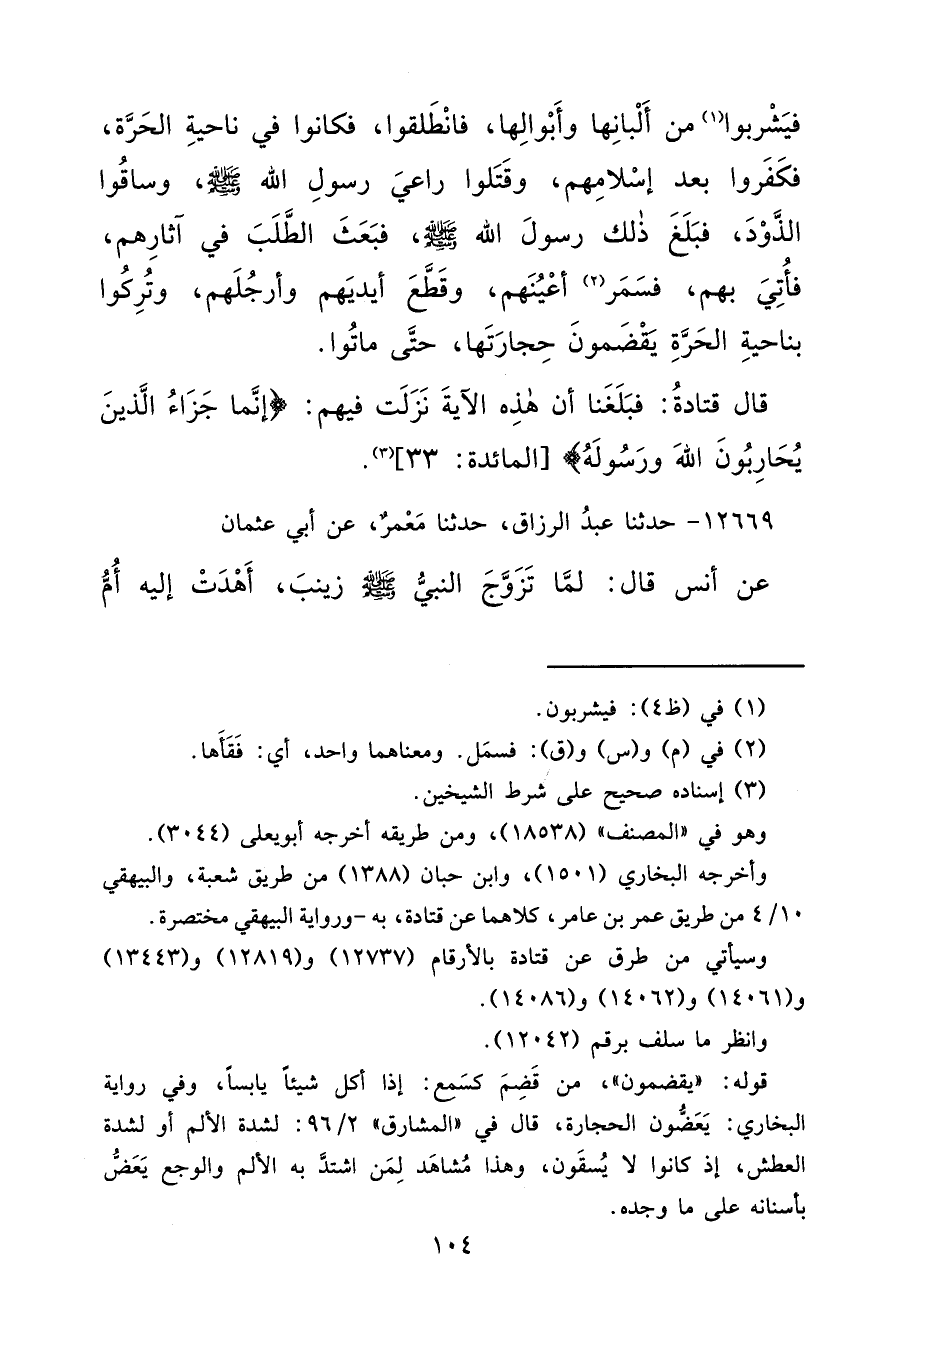 فيَشْربوا(١) من أَلْبانِها وأَبْوالِها، فانْطَلقوا، فكانوا في ناحيةِ الحَرَّة،
فكَفَروا بعد إسْلامِهم، وقَتَلوا راعيَ رسولِ الله ﷺ، وساقُوا
الذَّوْدَ، فبَلَغَ ذٰلك رسولَ الله ﷺ، فبَعَثَ الطَّلَبَ في آثارِهم،
فأُتِيَ بهم، فسَمَر(٢) أعْيُنَهم، وقَطَّعَ أيديَهم وأرجُلَهم، وتُرِكُوا
بناحيةِ الحَرَّةِ يَقْضَمونَ حِجارَتَها، حتَّى ماتُوا.
قال قتادةُ: فبَلَغَنا أن هٰذِه الآيةَ نَزَلَت فيهم: ﴿إنَّما جَزَاءُ الَّذينَ
يُحَارِبُونَ اللهَ ورَسُولَهُ﴾ [المائدة: ٣٣](٣).
١٢٦٦٩- حدثنا عبدُ الرزاق، حدثنا مَعْمرٌ، عن أبي عثمان
عن أنس قال: لمَّا تَزَوَّجَ النبيُّ ﷺ زينبَ، أَهْدَتْ إليه أُمُّ
(١) في (ظ٤): فيشربون.
(٢) في (م) و(س) و(ق): فسمَل. ومعناهما واحد، أي: فَقَأَها.
(٣) إسناده صحيح على شرط الشيخين.
وهو في «المصنف» (١٨٥٣٨)، ومن طريقه أخرجه أبويعلى (٣٠٤٤).
وأخرجه البخاري (١٥٠١)، وابن حبان (١٣٨٨) من طريق شعبة، والبيهقي
٤/١٠ من طريق عمر بن عامر، كلاهما عن قتادة، به -ورواية البيهقي مختصرة.
وسيأتي من طرق عن قتادة بالأرقام (١٢٧٣٧) و(١٢٨١٩) و(١٣٤٤٣)
و(١٤٠٦١) و(١٤٠٦٢) و(١٤٠٨٦).
وانظر ما سلف برقم (١٢٠٤٢).
قوله: «يقضمون»، من قَضِمَ كسَمِع: إذا أكل شيئاً يابساً، وفي رواية
البخاري: يَعَضُّون الحجارة، قال في «المشارق» ٩٦/٢: لشدة الألم أو لشدة
العطش، إذ كانوا لا يُسقَون، وهذا مُشاهَد لِمَن اشتدَّ به الألم والوجع يَعَضُّ
بأسنانه على ما وجده.
١٠٤